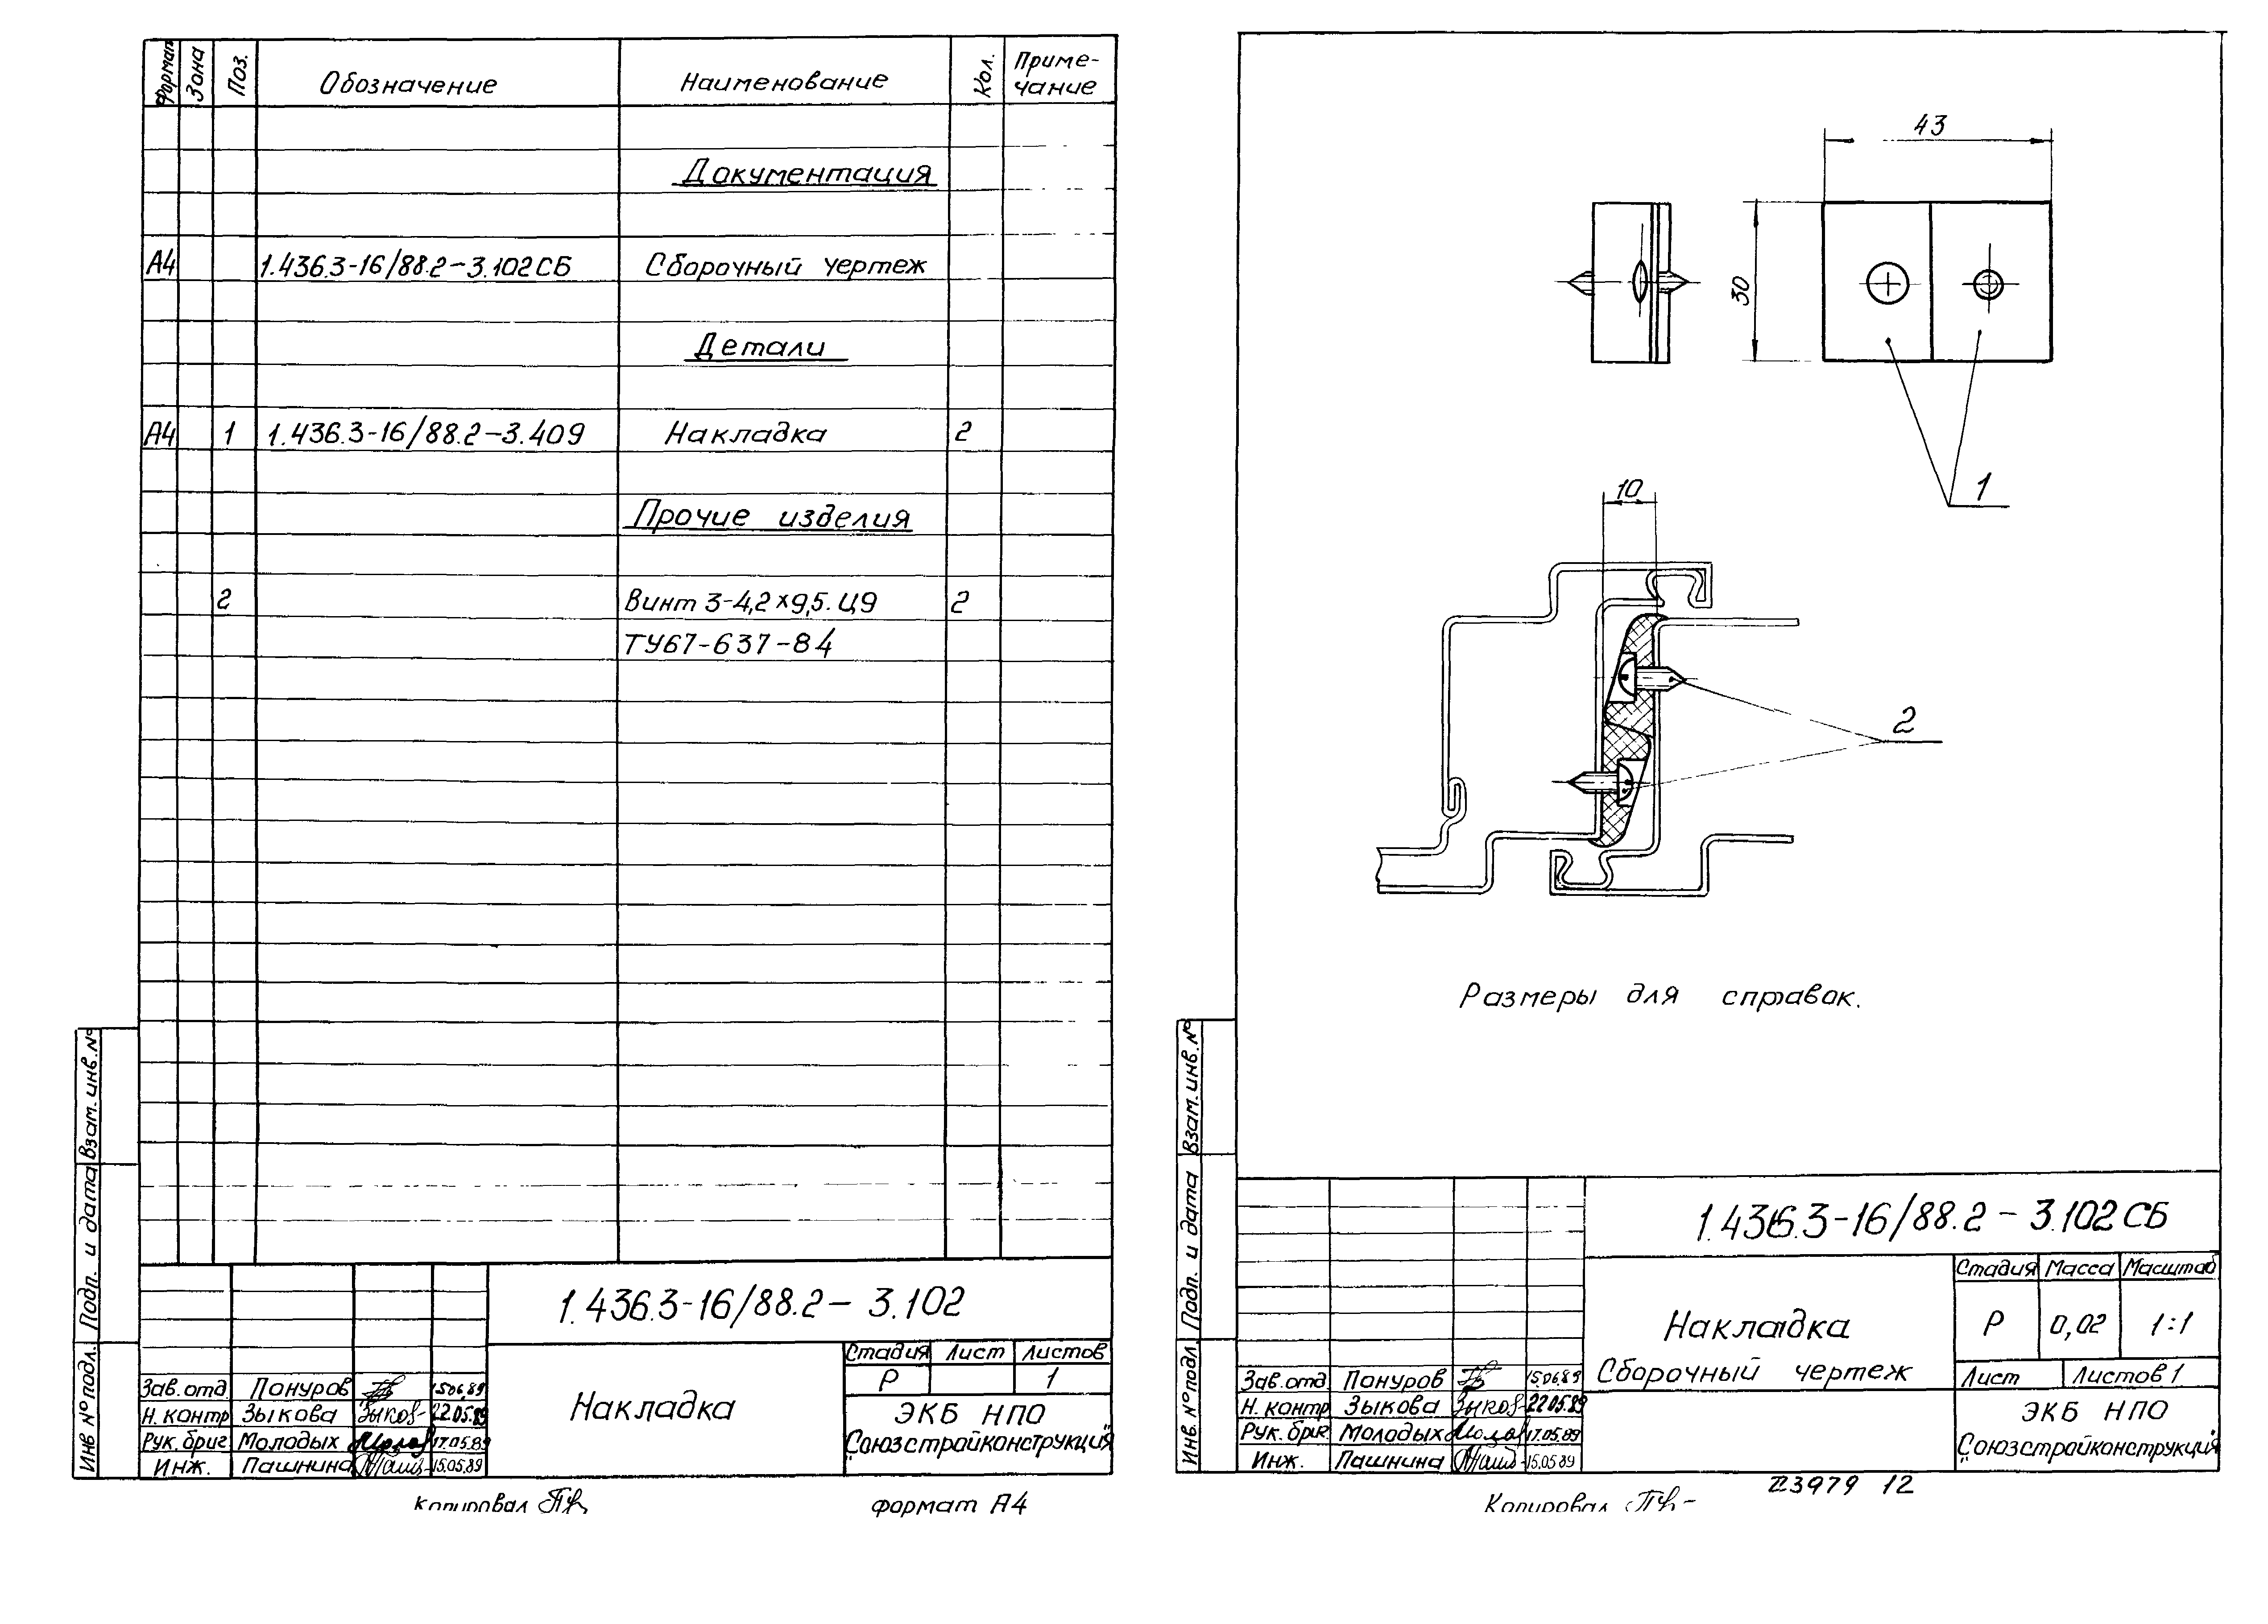 Формат Зона Поз. Обозначение Наименование Кол. Приме-
чание
Документация
А4 1.436.3-16/88.2-3.102СБ Сборочный чертеж
Детали
А4 1 1.436.3-16/88.2-3.409 Накладка 2
Прочие изделия
2 Винт 3-4,2×9,5. Ц9 2
ТУ67-637-84
Взам. инв. №
Подп. и дата
Инв № подл.
1.436.3-16/88.2-3.102
Накладка
Стадия Лист Листов
Р 1
ЭКБ НПО
"Союзстройконструкция"
Зав. отд. Пануров 15.06.89
Н. контр Зыкова Зыков- 22.05.89
Рук. бриг Молодых 17.05.89
Инж. Пашнина 15.05.89
Копировал
формат А4
43
30
1
10
2
Размеры для справок.
Взам. инв. №
Подп. и дата
Инв. № подл
1.436.3-16/88.2-3.102СБ
Накладка
Сборочный чертеж
Стадия Масса Масштаб
Р 0,02 1:1
Лист Листов 1
ЭКБ НПО
"Союзстройконструкция"
Зав. отд. Пануров 15.06.89
Н. контр Зыкова Зыков- 22.05.89
Рук. бриг Молодых 17.05.89
Инж. Пашнина 15.05.89
Копировал
23979 12